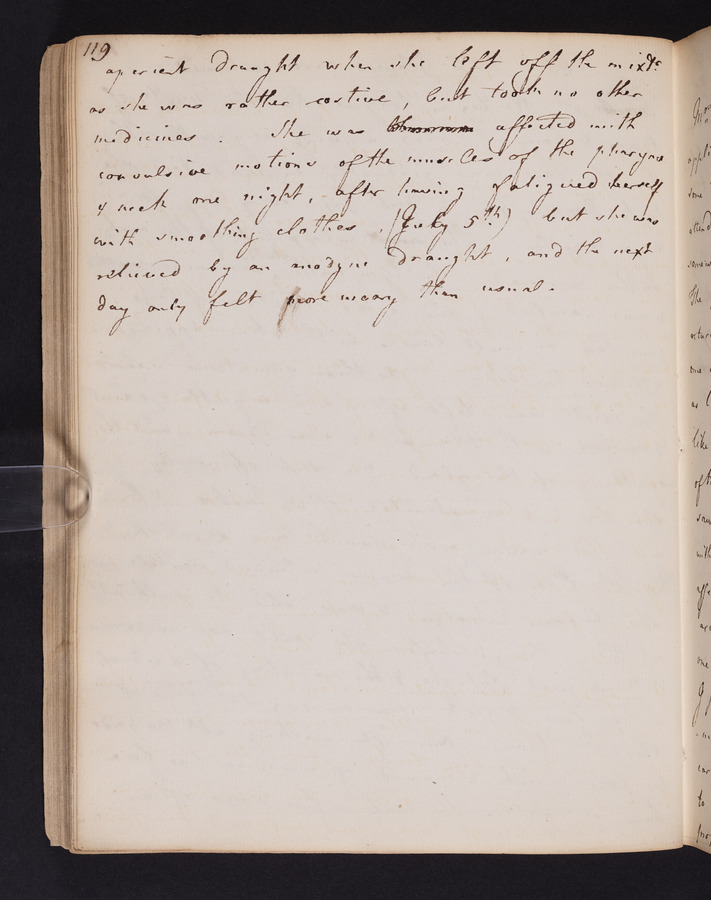 119
aperient draught when she left off the mixt.
as she was rather costive, but took no other
medicines. She was affected with
convulsive motions of the muscles of the pharynx
& neck one night, after having fatigued herself
with smoothing clothes, (July 5th) but she was
relieved by an anodyne draught, and the next
day only felt more weary than usual.